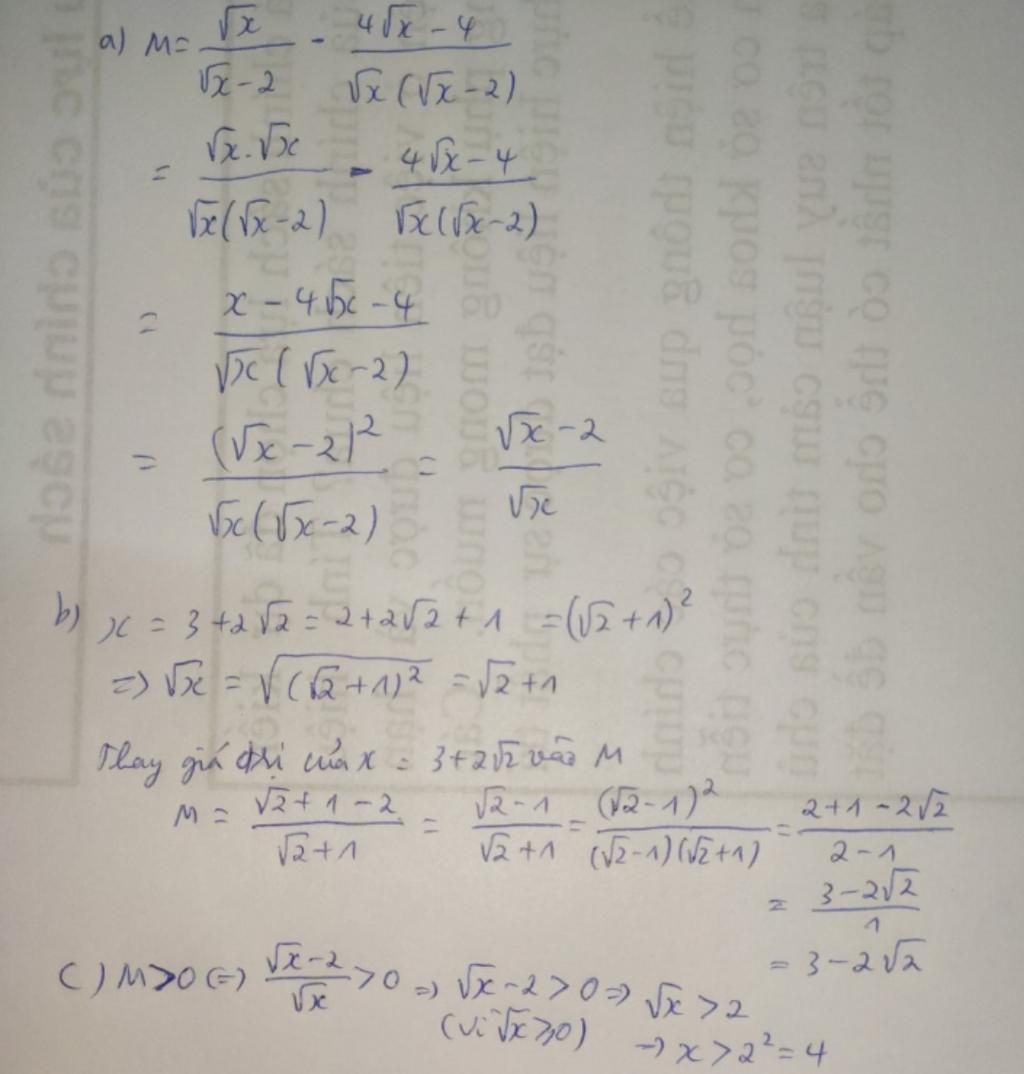 a) M = √x/(√x-2) - (4√x-4)/(√x(√x-2))
= (√x.√x)/(√x(√x-2)) - (4√x-4)/(√x(√x-2))
= (x-4√x-4)/(√x(√x-2))
= (√x-2)²/(√x(√x-2)) = (√x-2)/√x
b) x = 3+2√2 = 2+2√2+1 = (√2+1)²
=> √x = √((√2+1)²) = √2+1
Thay giá trị của x = 3+2√2 vào M
M = (√2+1-2)/(√2+1) = (√2-1)/(√2+1) = (√2-1)²/((√2-1)(√2+1)) = (2+1-2√2)/(2-1)
= (3-2√2)/1
= 3-2√2
C) M>0 (=) (√x-2)/√x >0 => √x-2>0 => √x >2
(vì √x ≥0) => x>2²=4